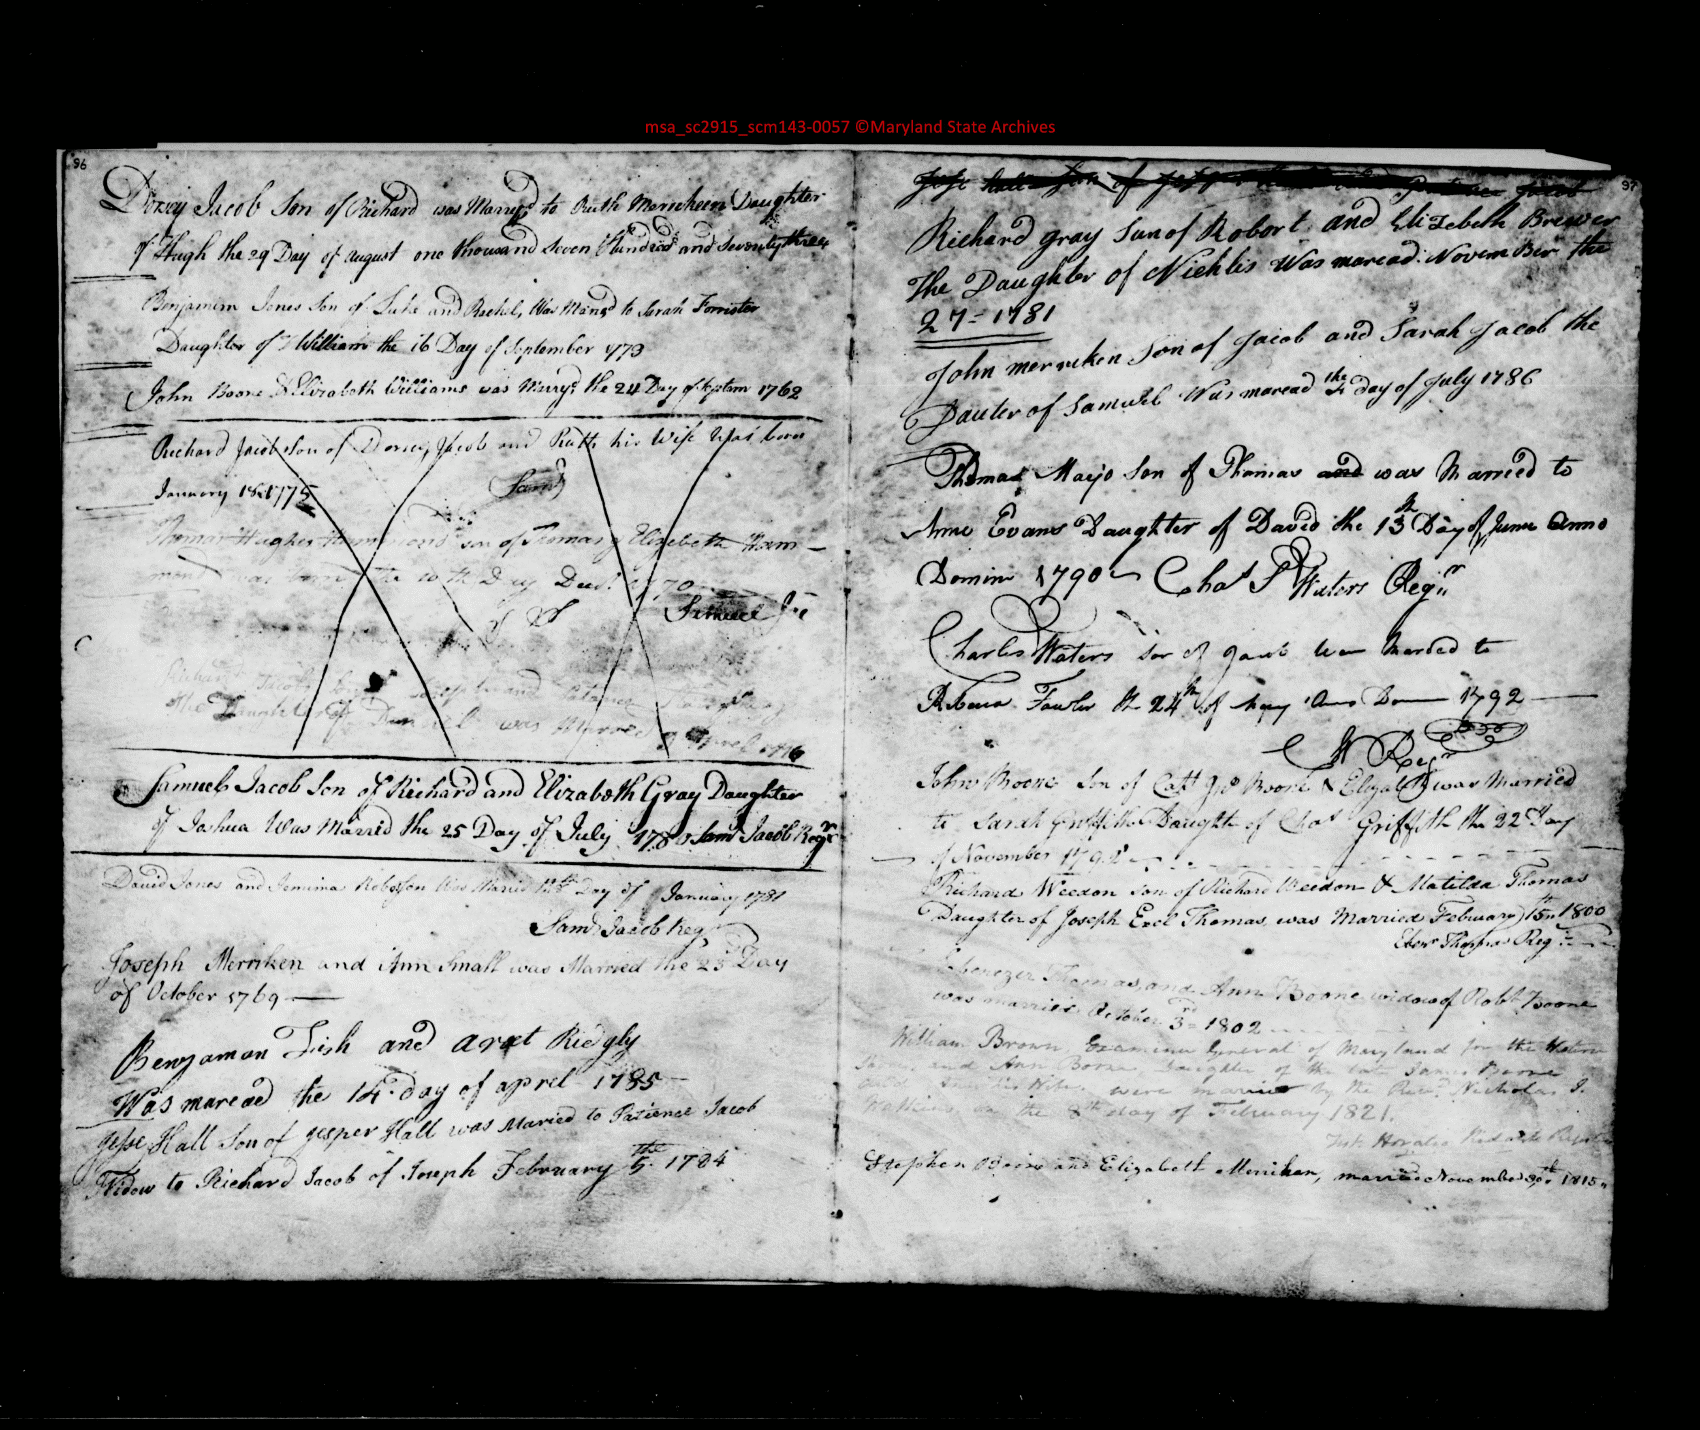 msa_sc2915_scm143-0057 ©Maryland State Archives
96
Dorsey Jacob Son of Richard was Marry'd to Ruth Merrikeen Daughter
of Hugh the 29 Day of August one thousand Seven Hundred and Seventy three
Benjamin Jones Son of Luke and Rachel, Was Marry'd to Sarah Forrister
Daughter of William the 16 Day of September 1773
John Boone & Elizabeth Williams was Marry'd the 24 Day of Septem 1762
Richard Jacob Son of Dorsey Jacob and Ruth his Wife Was born
January 18 1775
Saml
Thomas Hughes Hammond son of Thomas & Elizabeth Ham-
mond was born the 10th Day Decr. 1770
Samuel
Richard Jacob Joseph and
the Daughter of was Married April 1776
Samuel Jacob Son of Richard and Elizabeth Gray Daughter
of Joshua Was Married the 25 Day of July 1780 Saml Jacob Regr
David Jones and Jemima Robosson Was Maried Day of January 1781
Saml Jacob Reg
Joseph Merriken and Ann Small was Married the 25 Day
of October 1769
Benjaman Fish and arat Ridgly
Was maread the 14 day of aprel 1785
Jesse Hall Son of Jesper Hall was Maried to Patience Jacob
Widow to Richard Jacob of Joseph February the 5 1784
97
Jesse Hall Son of Jacob
Richard gray Sun of Robort and Elizebeth Brewer
The Daughter of Nichlis Was maread November the
27 = 1781
John merriken Son of Jacob and Sarah Jacob the
Dauter of Samuel Was maread the 4 day of July 1786
Thomas Mayo Son of Thomas and was Married to
Anne Evans Daughter of David the 13th Day of June Anno
Domini 1790 Chas Waters Regr
Charles Waters Son of Jacob Was Marded to
Rebecca Fowler the 24th of May Anno Dom 1792
W Regr
John Boone Son of Capt Jno Boone & Elizabeth was Married
to Sarah Griffith Daughtr of Chas Griffith the 22 Day
of November 1792
Richard Weedon Son of Richard Weedon & Matilda Thomas
Daughter of Joseph Thomas was Married February 15th 1800
Ebenr Thomas Reg
Ebenezer Thomas, and Ann Boone widow of Robt Boone
was married October 3rd = 1802
William Brown, Examiner General of Maryland for the Western
Shore and Ann Boone, Daughter of the late James Boone
and his Wife, were married by the Revd. Nicholas J.
Watkins, on the 8th day of February 1821.
Test. Horatio Ridout Register
Stephen Boone and Elizabeth Merriken, married November 30th, 1815